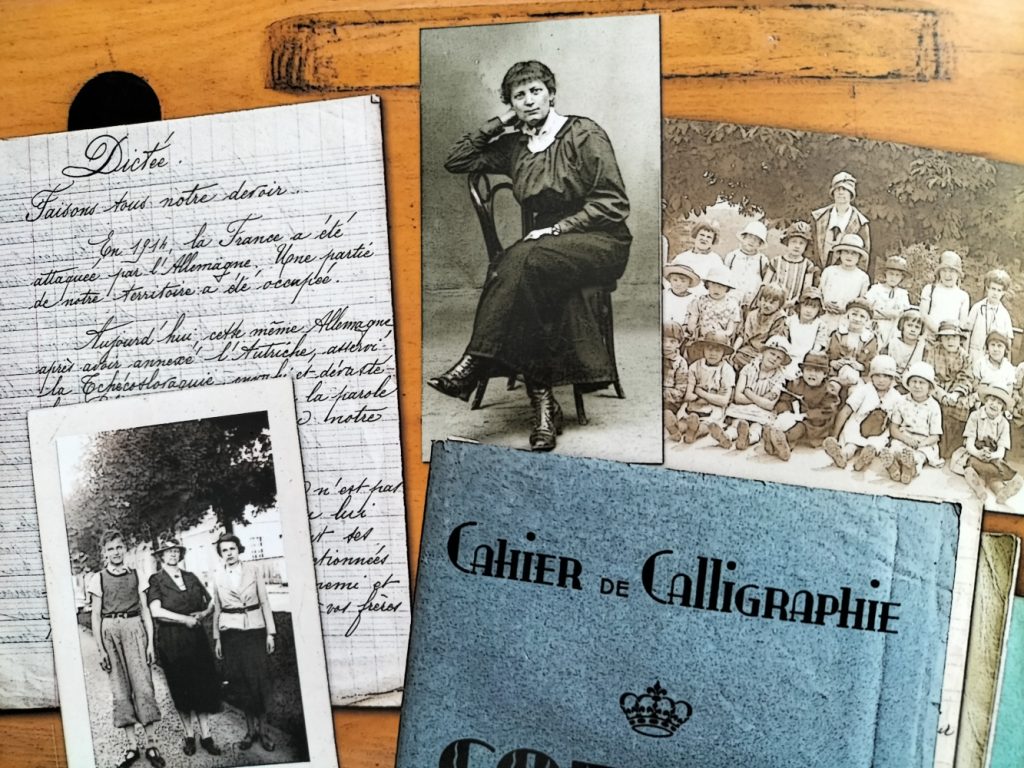 Dictée.
Faisons tous notre devoir.
En 1914, la France a été
attaquée par l'Allemagne. Une partie
de notre territoire a été occupée.
Aujourd'hui, cette même Allemagne,
après avoir annexé l'Autriche, asservi
la Tchécoslovaquie, envahi et dévasté
la parole
notre
n'est pas
lui
ses
et
vos frères
CAHIER DE CALLIGRAPHIE